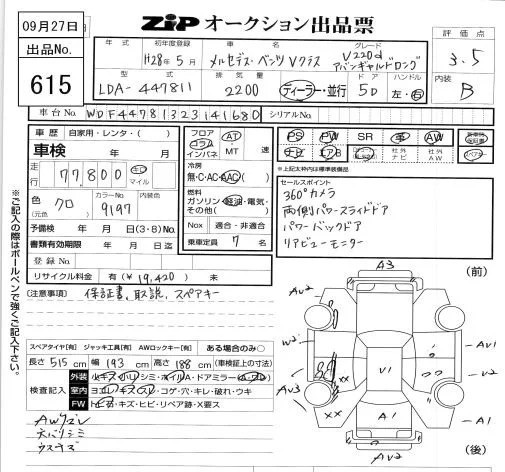 09月27日
ZIP オークション出品票
出品No.
615
年式
初年度登録
車名
グレード
評価点
H28年5月
メルセデス・ベンツVクラス
V220d
アバンギャルドロング
3.5
型式
排気量
ドア
ハンドル
内装
LDA-447811
2200
ディーラー・並行
5D
左・右
B
車台No.
WDF44781323141680
シリアルNo.
車歴
自家用・レンタ・( )
フロア
AT
コラム
インパネ
MT
速
PS
PW
SR
革
AW
車検
年
月
日
冷房
無・C・AC・AAC
ナビ
TV
社外
ナビ
社外
AW
スペアキー
走行
77,800
キロ
マイル
※上記太枠内は標準装備品
燃料
ガソリン・軽油・電気・
その他( )
セールスポイント
360°カメラ
両側パワースライドドア
パワーバックドア
リアビューモニター
色
クロ
(元色)
カラーNo.
9197
内装色
予備検
年 月 日(3・8)No.
Nox
適合・非適合
書類有効期限
年 月 日迄
乗車定員
7
名
登録No.
リサイクル料金
有(¥19,420)
未
(注意事項)
保証書、取説、スペアキー
※ご記入の際はボールペンで強くご記入下さい。
(前)
A3
AU2
W2
AU1
U1
U2
AU3
XX
XX
A1
A1
AU2
(後)
スペアタイヤ[有] ジャッキ工具[有] AWロックキー[有] ある場合のみ○
長さ 515 cm 幅 193 cm 高さ 188 cm (車検証上の寸法)
検査記入
外装
小キズ・小凹・シミ・ホイルA・ドアミラー(A・ワレ)
室内
ヨゴレ・キズ・スレ・コゲ・穴・キレ・破れ・ウキ
FW
トビ石・キズ・ヒビ・リペア跡・X要ス
AWズレ
天バリシミ
ウスキズ